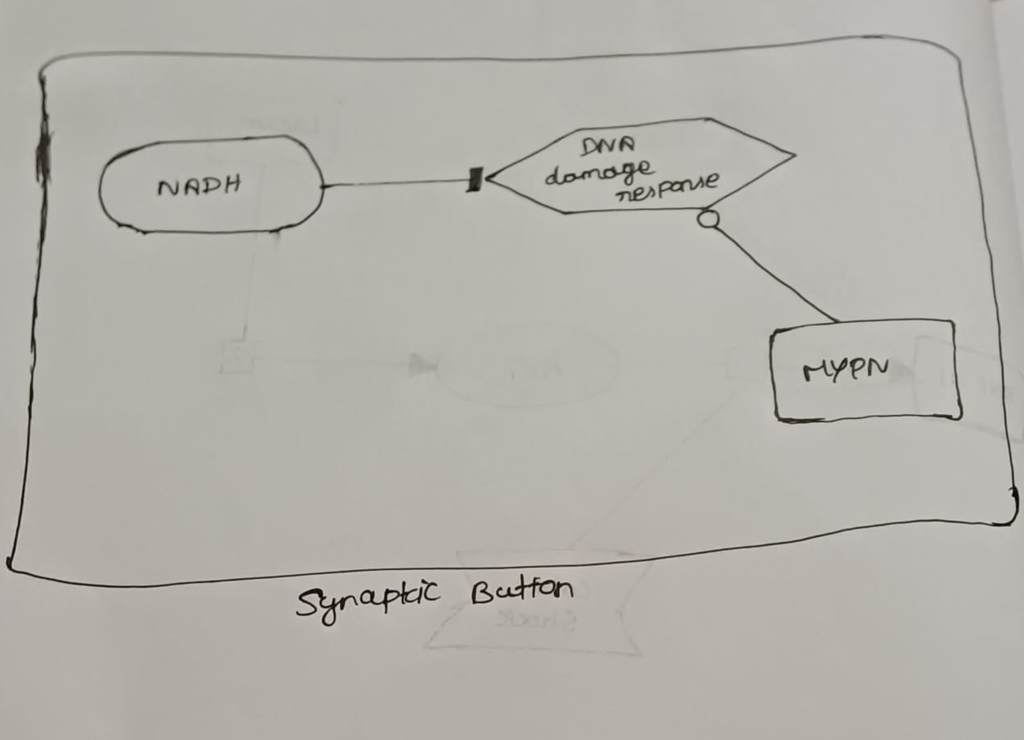 NADH
DNA
damage
response
MYPN
Synaptic Button